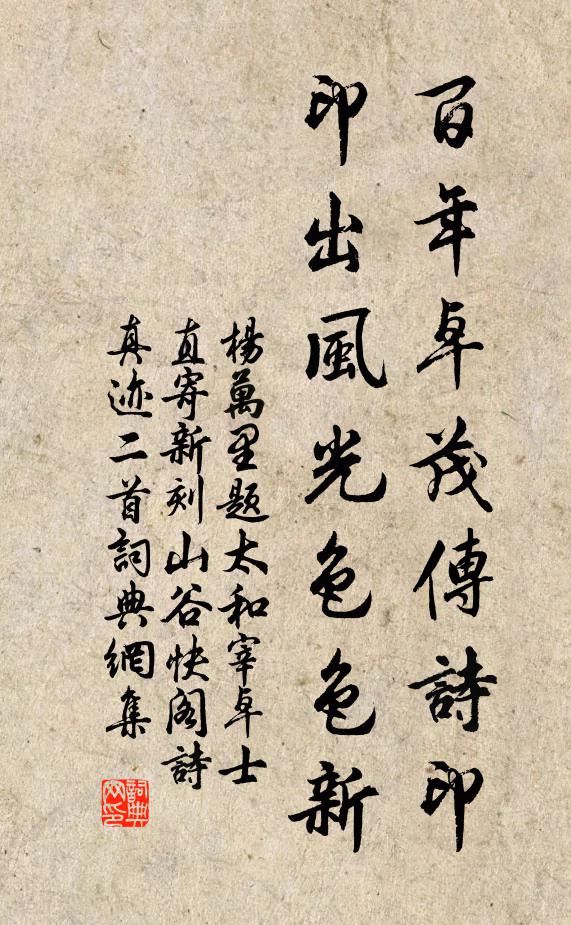 百年卓茂傳詩印
印出風光色色新
楊萬里題太和宰卓士
直寄新刻山谷快阁詩
真迹二首詞典網集
詞典网印